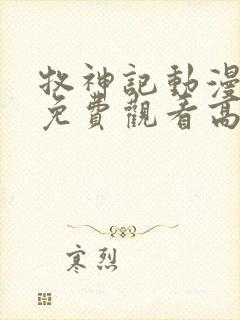 牧神記動漫
免費觀看高
寒烈